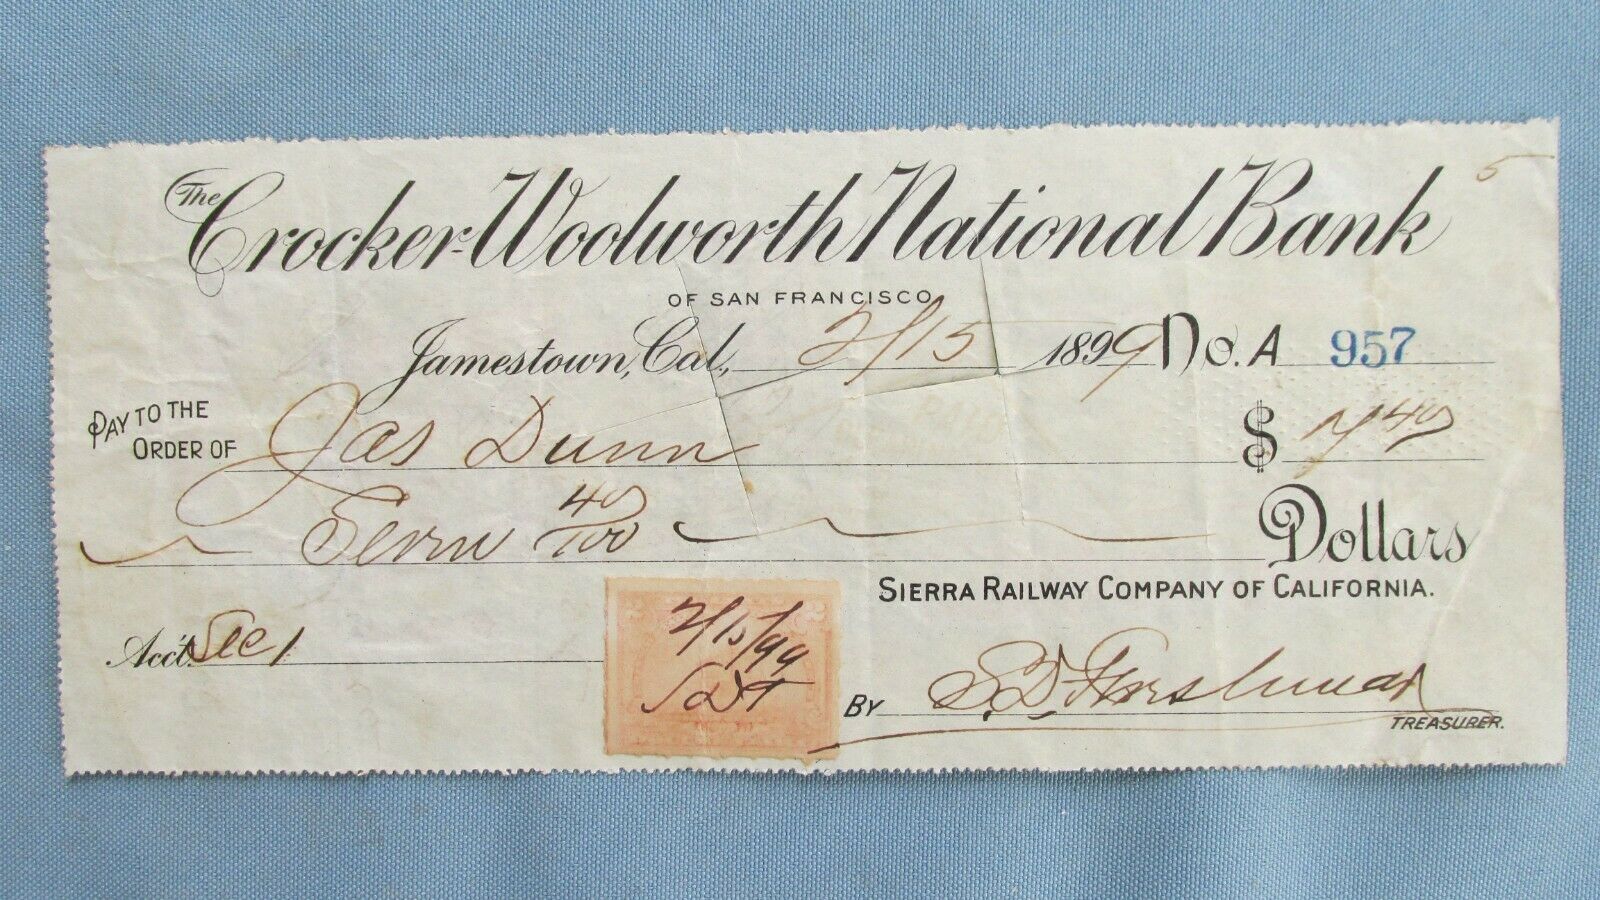 5
The Crocker-Woolworth National Bank
OF SAN FRANCISCO
Jamestown, Cal., 2/15 1899 No. A 957
PAY TO THE ORDER OF Jas Dunn $ 7 40
Seven 40/100 Dollars
SIERRA RAILWAY COMPANY OF CALIFORNIA.
Acc't. Sec 1
2/15/99
BY S.D.
TREASURER.